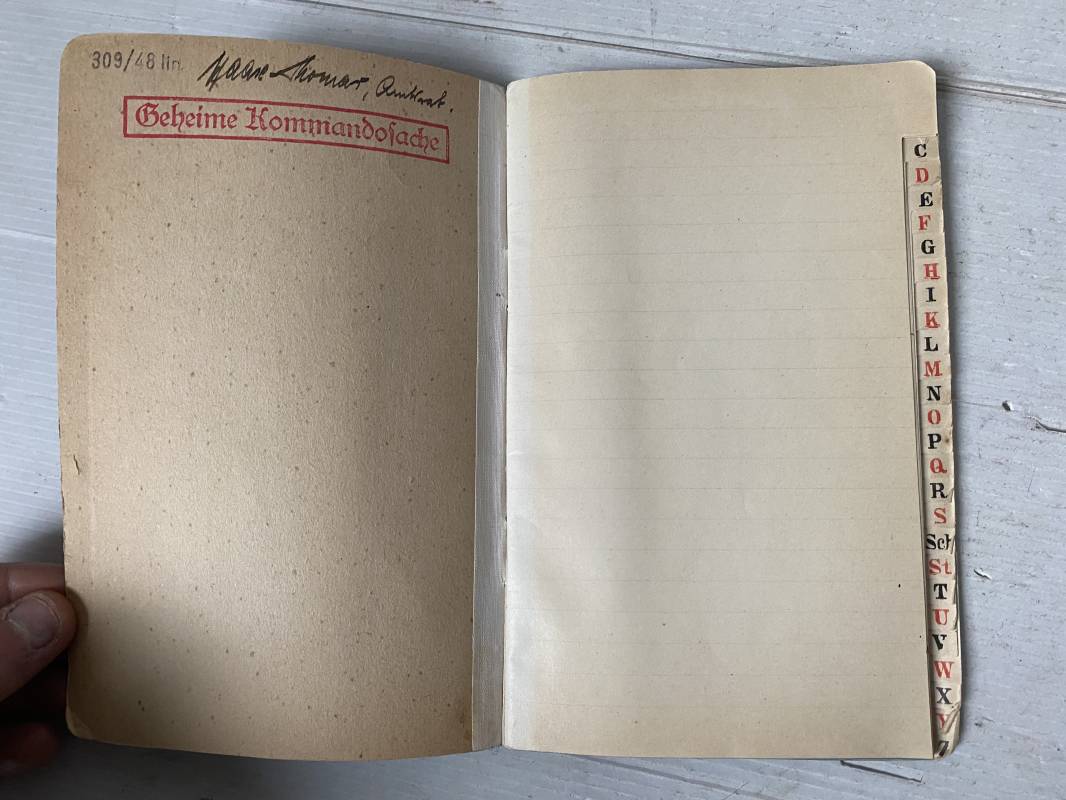 309/48 lin.
Haase-Thomas, Amtsrat.
Geheime Kommandosache
C
D
E
F
G
H
I
K
L
M
N
O
P
Q
R
S
Sch
St
T
U
V
W
X
Y
Z